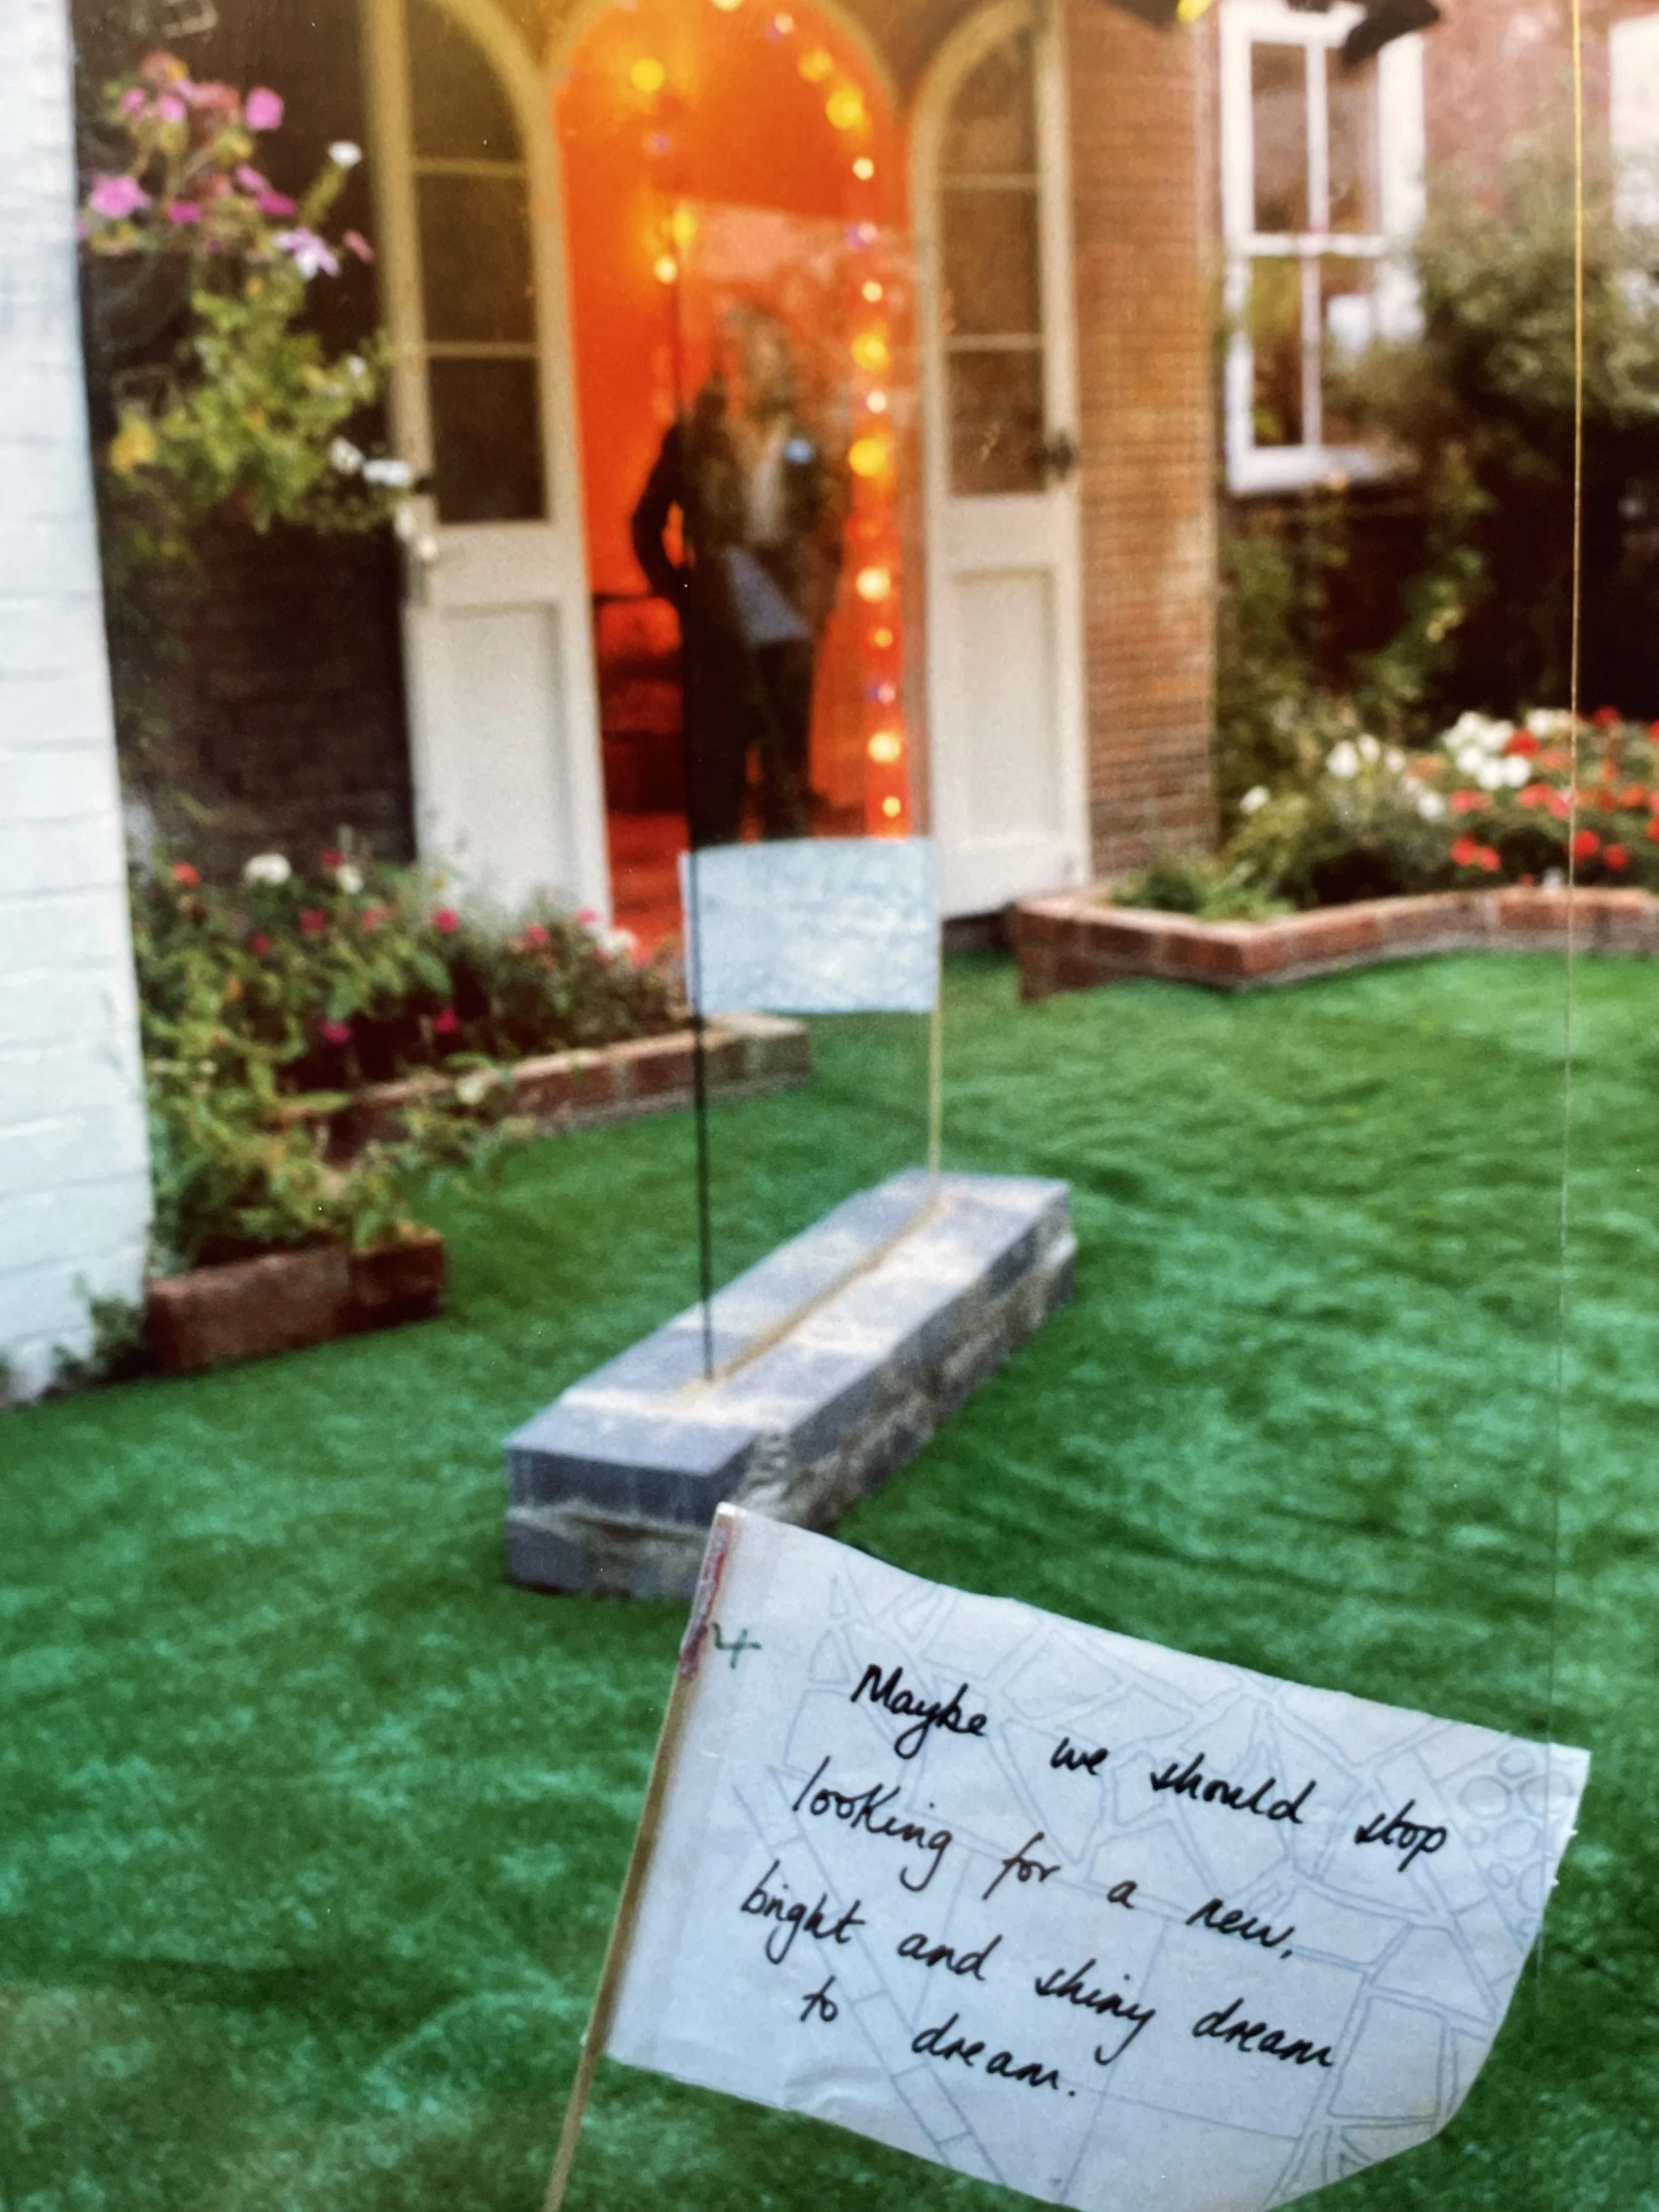 4
Maybe we should stop
looking for a new,
bright and shiny dream
to dream.